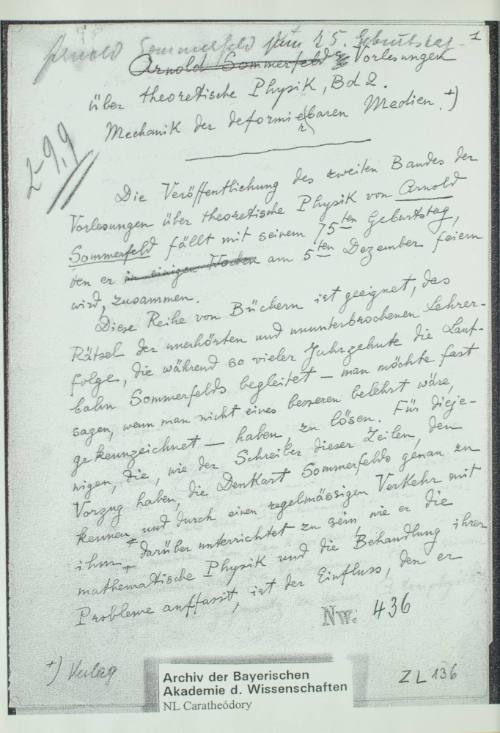 Arnold Sommerfeld zum 75. Geburtstag 1
Arnold Sommerfeld Vorlesungen
über theoretische Physik, Bd 2.
Mechanik der deformierbaren Medien. +)
Die Veröffentlichung des zweiten Bandes der
Vorlesungen über theoretische Physik von Arnold
Sommerfeld fällt mit seinem 75ten Geburtstag,
den er in einigen Wochen am 5ten Dezember feiern
wird, zusammen.
Diese Reihe von Büchern ist geeignet, das
Rätsel der unerhörten und ununterbrochenen Lehrer-
folge, die während so vieler Jahrzehnte die Lauf-
bahn Sommerfelds begleitet — man möchte fast
sagen, wenn man nicht eines besseren belehrt wäre,
gekennzeichnet — haben, zu lösen. Für dieje-
nigen, die, wie der Schreiber dieser Zeilen, den
Vorzug haben, die Denkart Sommerfelds genau zu
kennen und durch einen regelmässigen Verkehr mit
ihm darüber unterrichtet zu sein, wie er die
mathematische Physik und die Behandlung ihrer
Probleme auffasst, ist der Einfluss, den er
Nw. 436
+) Verlag
Archiv der Bayerischen
Akademie d. Wissenschaften
NL Caratheódory
ZL 136